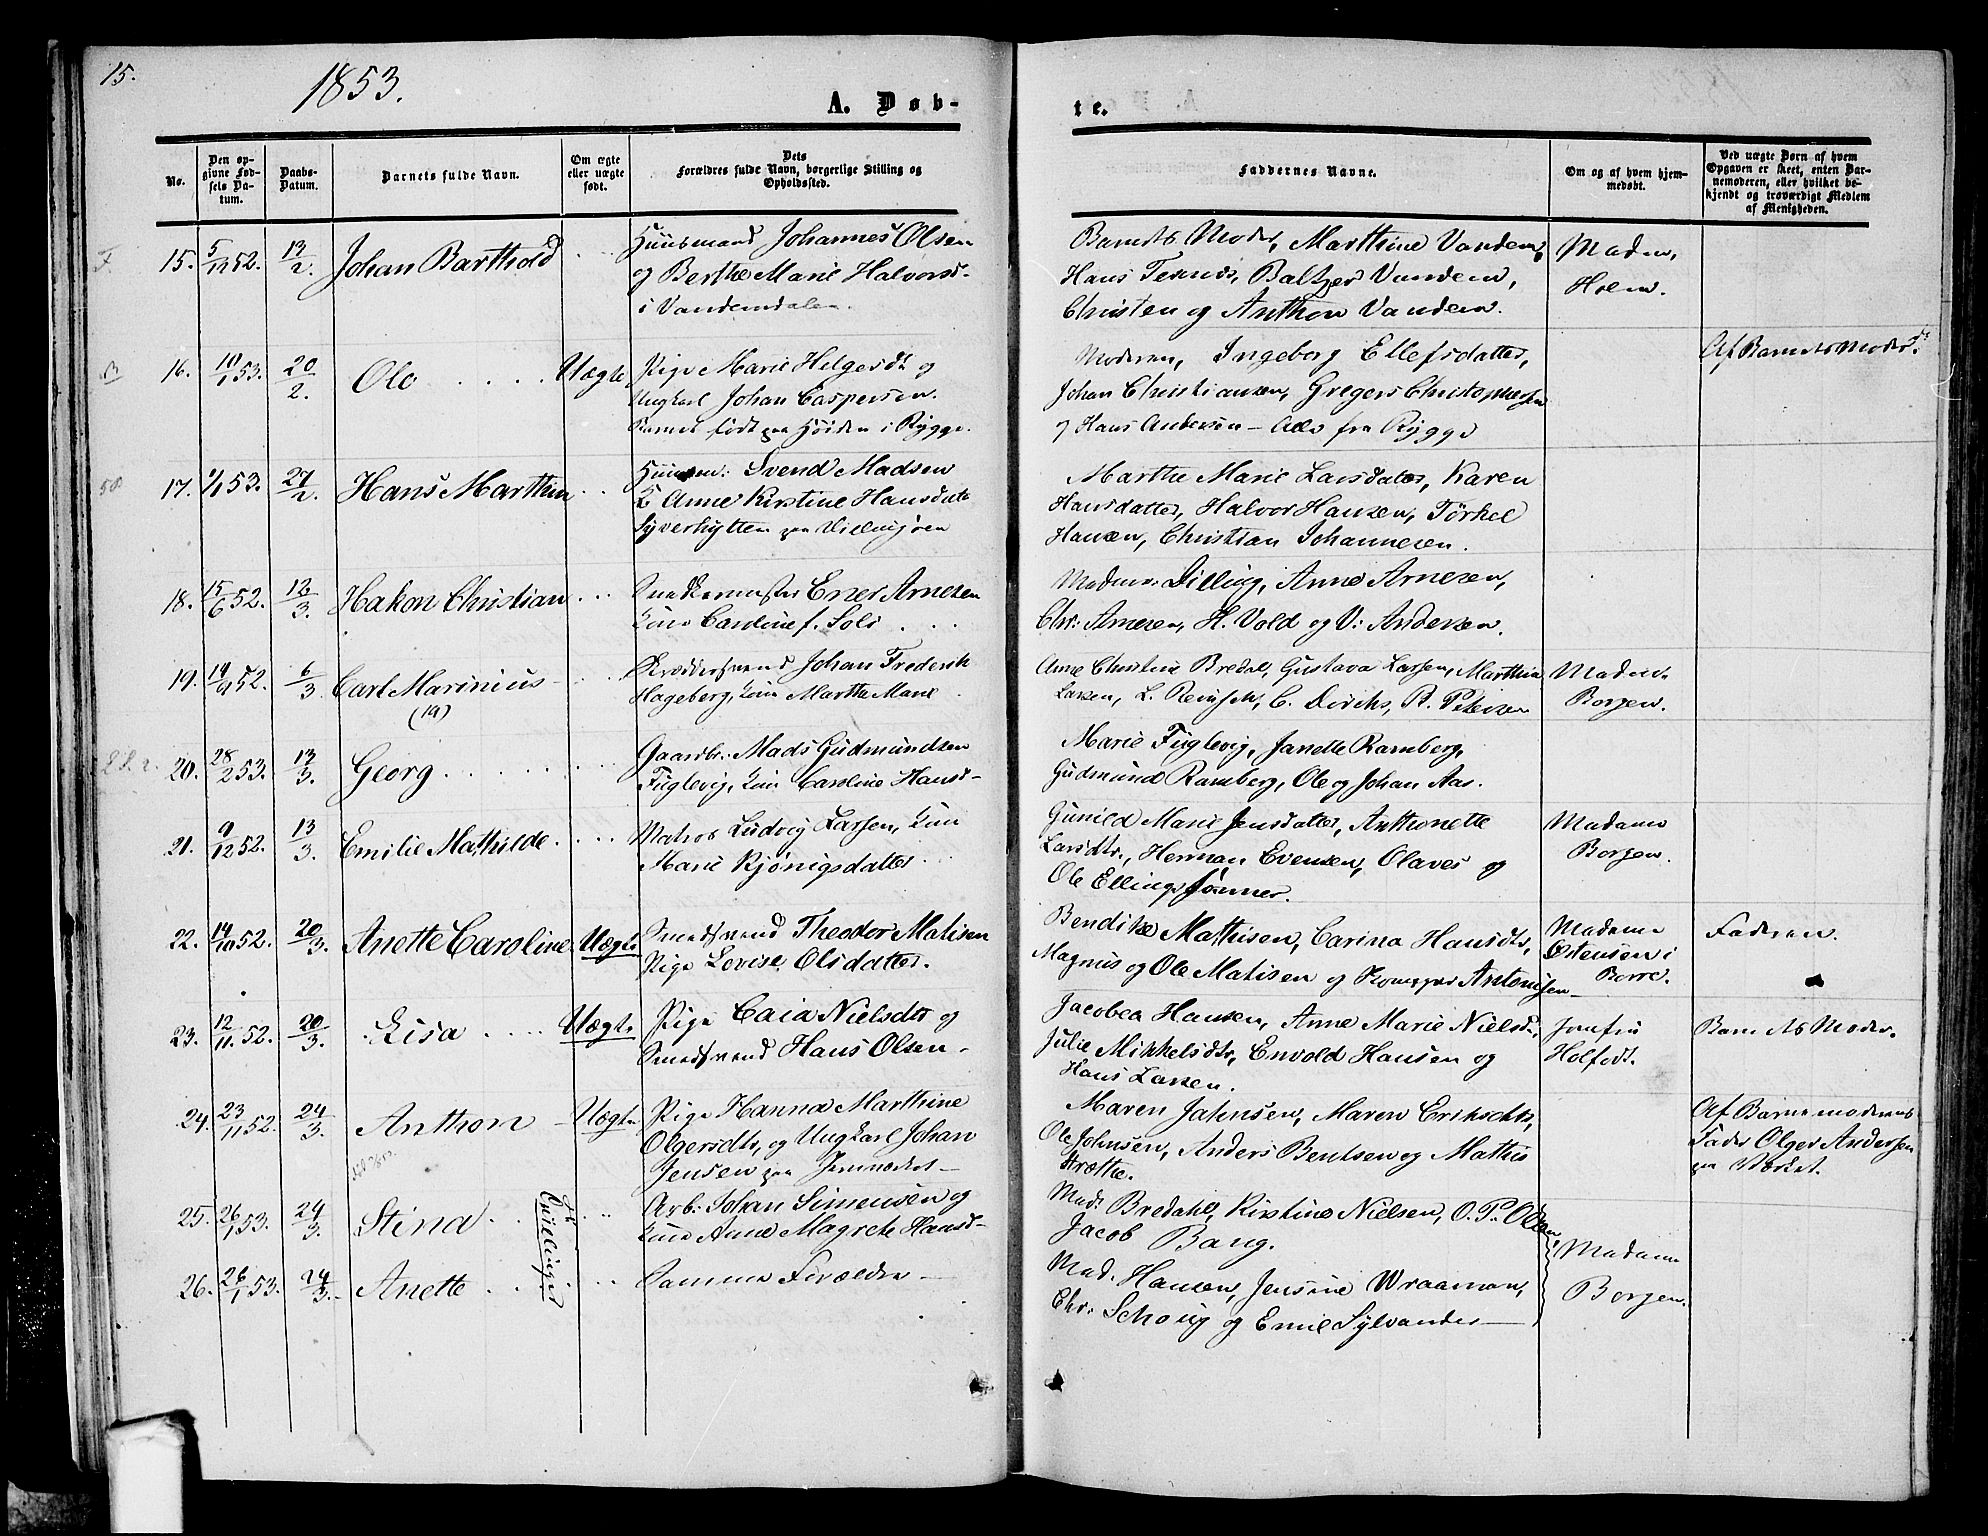 15.
1853.
A. Døb-
te.
No.
Den op-
givne Fød-
sels Da-
tum.
Daabs-
Datum.
Barnets fulde Navn.
Om ægte
eller uægte
født.
Dets
Forældres fulde Navn, borgerlige Stilling og
Opholdssted.
Faddernes Navne.
Om og af hvem hjem-
medøbt.
Ved uægte Børn af hvem
Opgaven er skeet, enten Bar-
nemoderen, eller hvilket be-
kjendt og troværdigt Medlem
af Menigheden.
15. 5/12 52. 13/2. Johan Barthold
Huusmand Johannes Olsen
og Berthe Marie Halvorsd-
i Vandemdalen.
Barnets Moder, Marthine Vandem,
Hans Baltzer Vandem,
Christen og Anthon Vandem.
Madm.
Holm.
16. 10/1 53. 20/2. Ole Uægte
Pige Marie Helgesdt og
Ungkarl Johan Caspersen.
Barnet født paa Høiden i Rygge.
Moderen, Ingeborg Ellefsdatter,
Johan Christiansen, Gregers Christophersen
og Hans Andersen - Alle fra Rygge
Af Barnets Moder.
17. 1/1 53. 27/2. Hans Marthin
Huusm: Svend Madsen
& Anne Kirstine Hansdatt
Marthe Marie Larsdatter, Karen
Hansdatter, Halvor Hansen, Tørkel
Hansen, Christian Johannesen.
18. 15/6 52. 12/3. Hakon Christian
Snedkermester Ener Arnesen
Kone Caroline f. Soli
Madm. Dilling, Anne Arnesen,
Chr: Arnesen, H. Vold og V: Andersen.
19. 14/9 52. 6/3 Carl Marinius
(19)
Johan Frederik
Hageberg, Kone Marthe Marie
Anne Christine Bredal, Gustava Larsen, Marthin
Larsen, L. C. Dirichs, P. Petersen
Madm.
Borgen.
20. 28/2 53. 13/3. Georg
Gaardbr: Mads Gudmundsen
Fuglevig, Kone Caroline Hansd-
Marie Fuglevig, Janette Ramberg,
Gudmund Ramberg, Ole og Johan Aas.
21. 9/12 52. 13/3. Emilie Mathilde
Matros Ludvig Larsen, Kone
Marie Kjønigsdatter
Gunild Marie Jensdatter, Anthonette
Larsdtr., Herman Evensen, Olaves og
Ole Ellings Sønner.
Madame
Borgen.
22. 14/10 52. 20/3. Anette Caroline Uægte
Smedsvend Theodor Matisen
Pige Lovise Olsdatter.
Bendikte Mathisen, Carina Hansdtr,
Magnus og Ole Matisen og Antonisen
Madame
Østensen i
Borre.
Faderen.
23. 12/11 52. 20/3. Lisa Uægte
Pige Caia Nielsdtr og
Smedsvend Hans Olsen.
Jacobea Hansen, Anne Marie Nielsd.,
Julie Mikkelsdtr, Envold Hansen og
Hans Larsen.
Jomfru
Holfodt.
Barnets Moder.
24. 23/11 52. 24/3. Anthon Uægte
Pige Hanna Marthine
Olgersdtr, og Ungkarl Johan
Jensen paa
Maren Jahnsen, Maren Eriksdtr,
Ole Johnsen, Anders Bentsen og Mathis
Strætke.
Af Barnemoderens
Fader Olger Andersen
paa Værket.
25. 26/1 53. 24/3. Stina
Tvillinger
Arb: Johan Simensen og
Kone Anne Magrete Hansd-
Mad: Bredahl, Kirstine Nielsen, O. P. Olsen,
Jacob Bang.
26. 26/1 53. 24/3. Anette
Samme Forældre
Mad. Hansen, Jensine Wraaman,
Chr: Schoug og Emil Sylvander
Madame
Borgen.